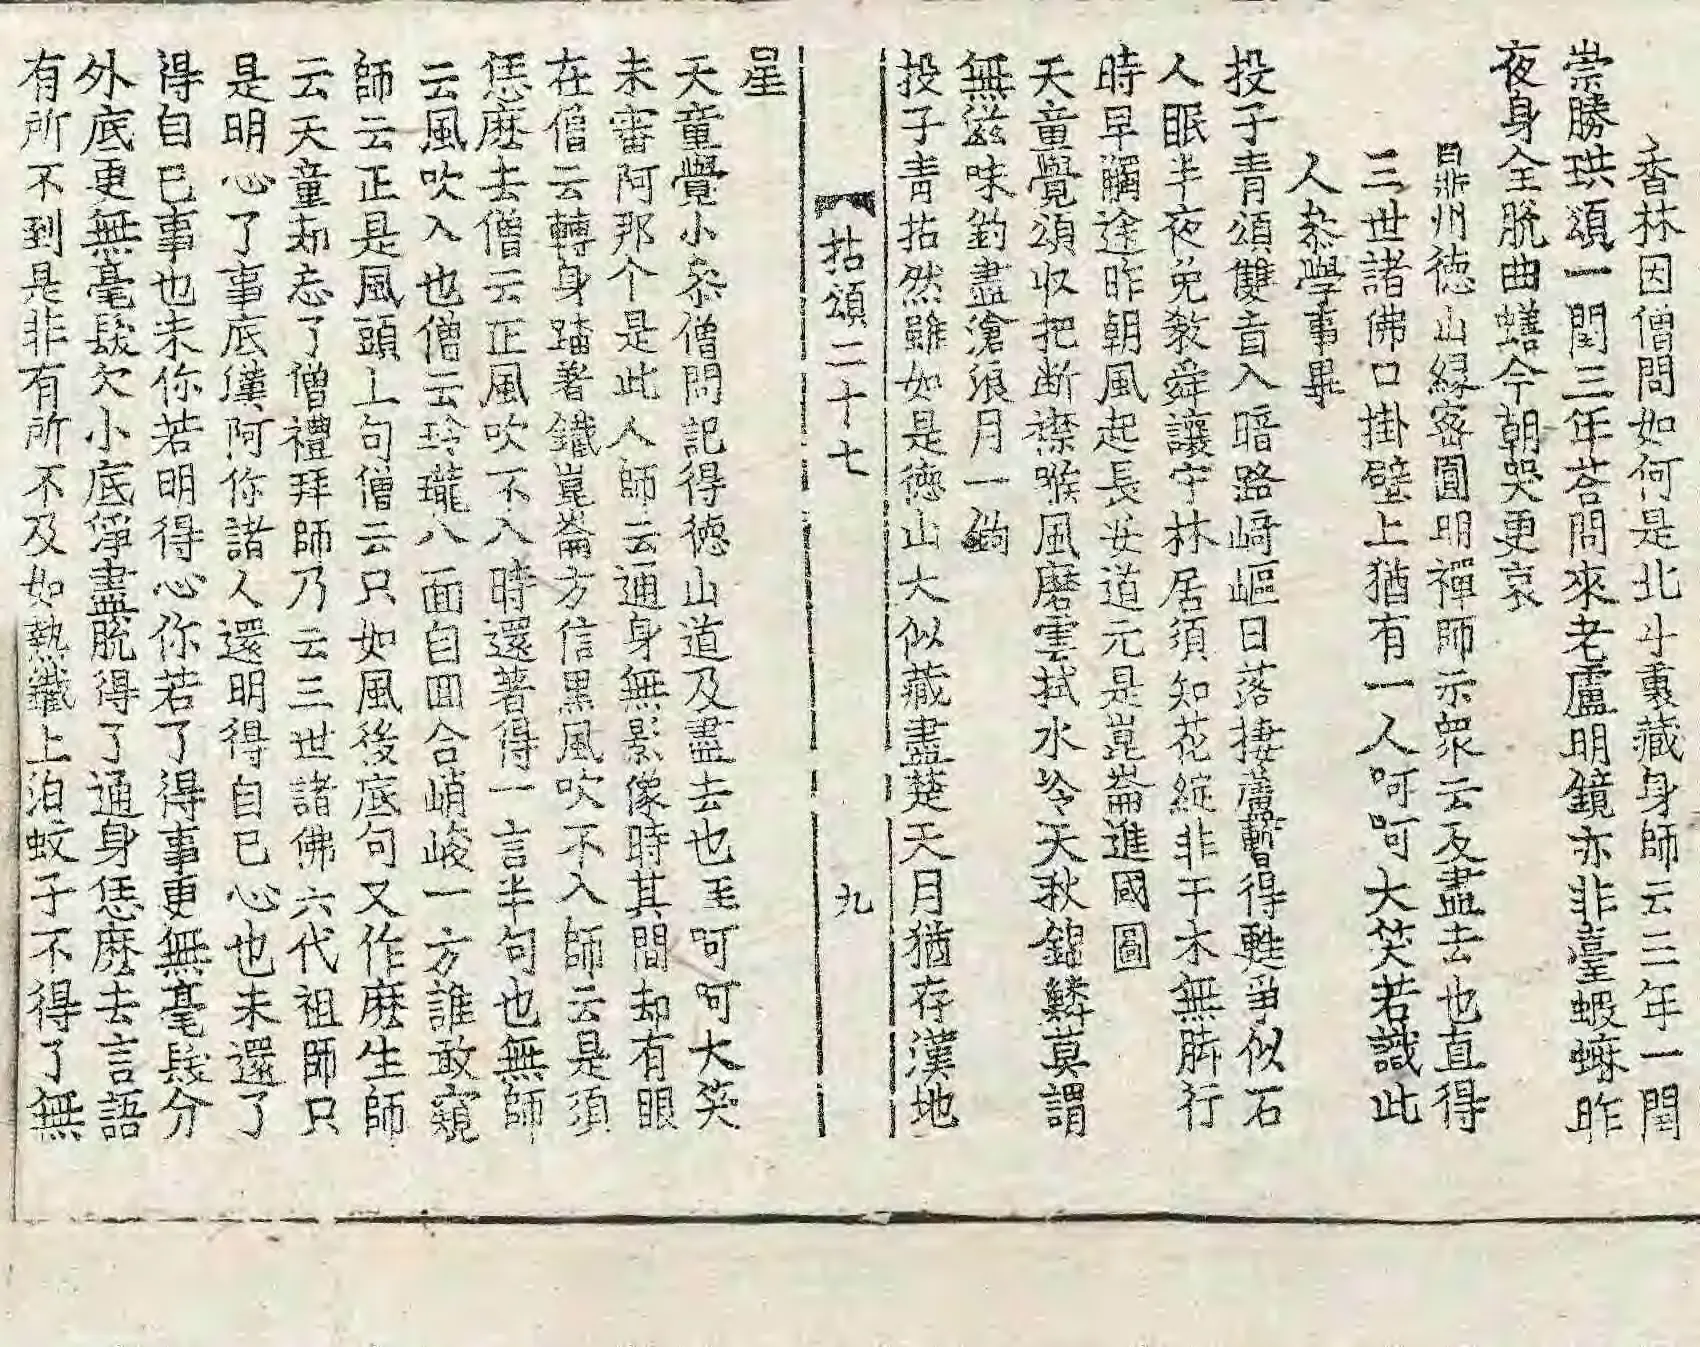 香林因僧問如何是北斗裏藏身師云三年一閏
崇勝珙頌一閏三年荅問來老盧明鏡亦非臺蝦蟆昨
夜身全脫曲蟮今朝哭更哀
鼎州德山緣密圓明禪師示衆云及盡去也直得
三世諸佛口掛壁上猶有一人呵呵大笑若識此
人叅學事畢
投子青頌雙盲入暗路﨑嶇日落捿蘆暫得甦爭似石
人眠半夜免教舜讓守林居須知花綻非干木無脚行
時早觸途昨朝風起長安道元是崑崙進國圖
天童覺頌収把断襟喉風磨雲拭水冷天秋錦鱗莫謂
無滋味釣盡滄浪月一鉤
投子青拈然雖如是德山大似藏盡楚天月猶存漢地
拈頌二十七 九
星
天童覺小叅僧問記得德山道及盡去也至呵呵大笑
未審阿那个是此人師云通身無影像時其間却有眼
在僧云轉身踏著鐵崑崙方信黒風吹不入師云是須
恁麽去僧云正風吹不入時還著得一言半句也無師
云風吹入也僧云玲瓏八面自回合峭峻一方誰敢窺
師云正是風頭上句僧云只如風後底句又作麽生師
云天童却忘了僧禮拜師乃云三世諸佛六代祖師只
是明心了事底僕阿你諸人還明得自已心也未還了
得自已事也未你若明得心你若了得事更無毫髮分
外底更無毫髮欠小底淨盡脫得了通身恁麽去言語
有所不到是非有所不及如熱鐵上泊蚊子不得了無